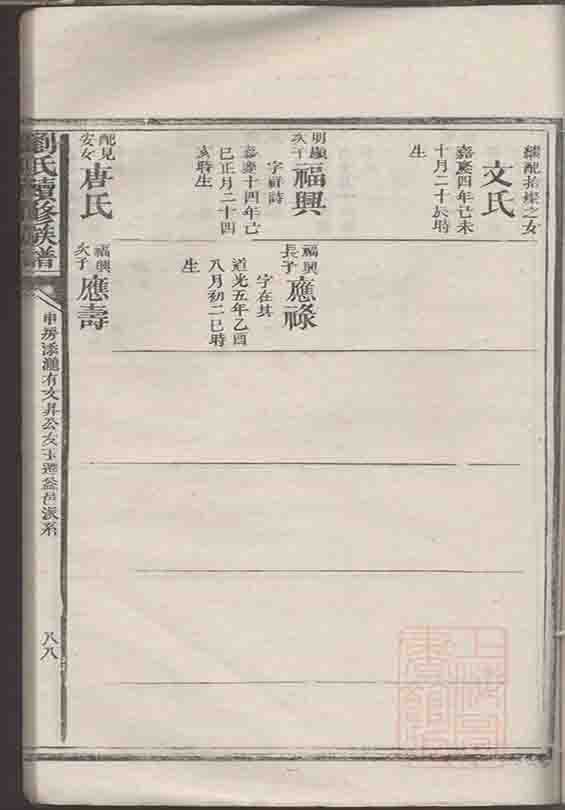 繼配拾燦之女
文氏
嘉慶四年己未
十月二十辰時
生
明顯
次子
福興
字祥詩
嘉慶十四年己
巳正月二十四
亥時生
配見
安女
唐氏
福興
長子
應祿
字在其
道光五年乙酉
八月初二巳時
生
福興
次子
應壽
劉氏續修族譜
申房添進有文昇公友玉遷益邑派系
八八
上海圖書館藏